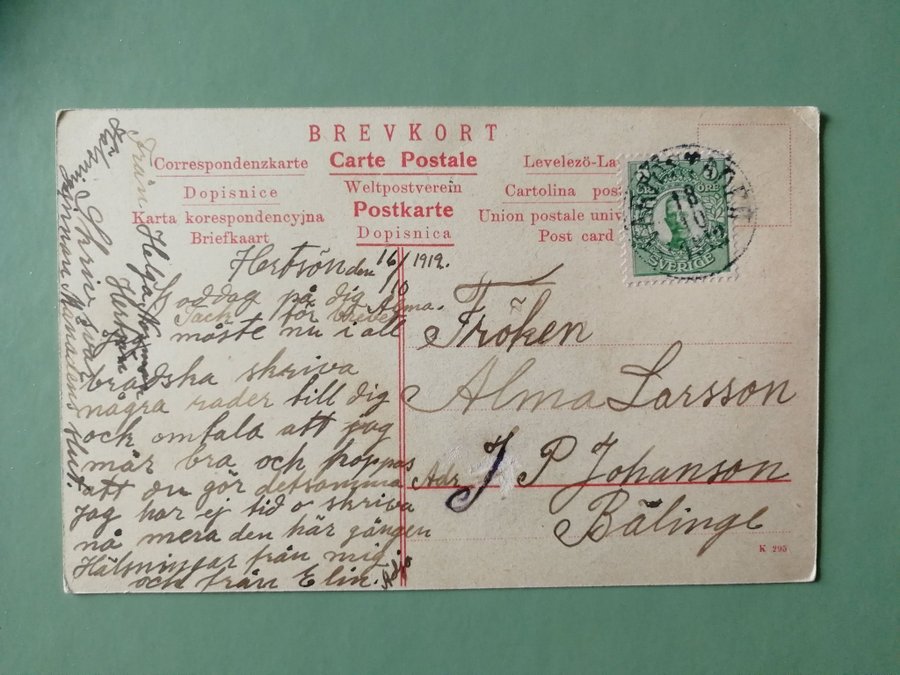 BREVKORT
Correspondenzkarte
Carte Postale
Levelezö-La
Dopisnice
Weltpostverein
Cartolina post
Karta korespondencyjna
Postkarte
Union postale univ
Briefkaart
Dopisnica
Post card
ÖRE
SVERIGE
18
10
Hertsön den 16/10 1912.
Goddag på dig Alma.
Tack för brevet
måste nu i all
bradska skriva
några rader till dig
och omtala att jag
mår bra och hoppas
att du gör detsamma
Jag har ej tid o skriva
nå mera den här gången
Hälsningar från mig
och från Elin. Adjö
från Helga
Hertsön
Skriv svar
Fröken
Alma Larsson
Adr J P Johanson
Bälinge
K 295